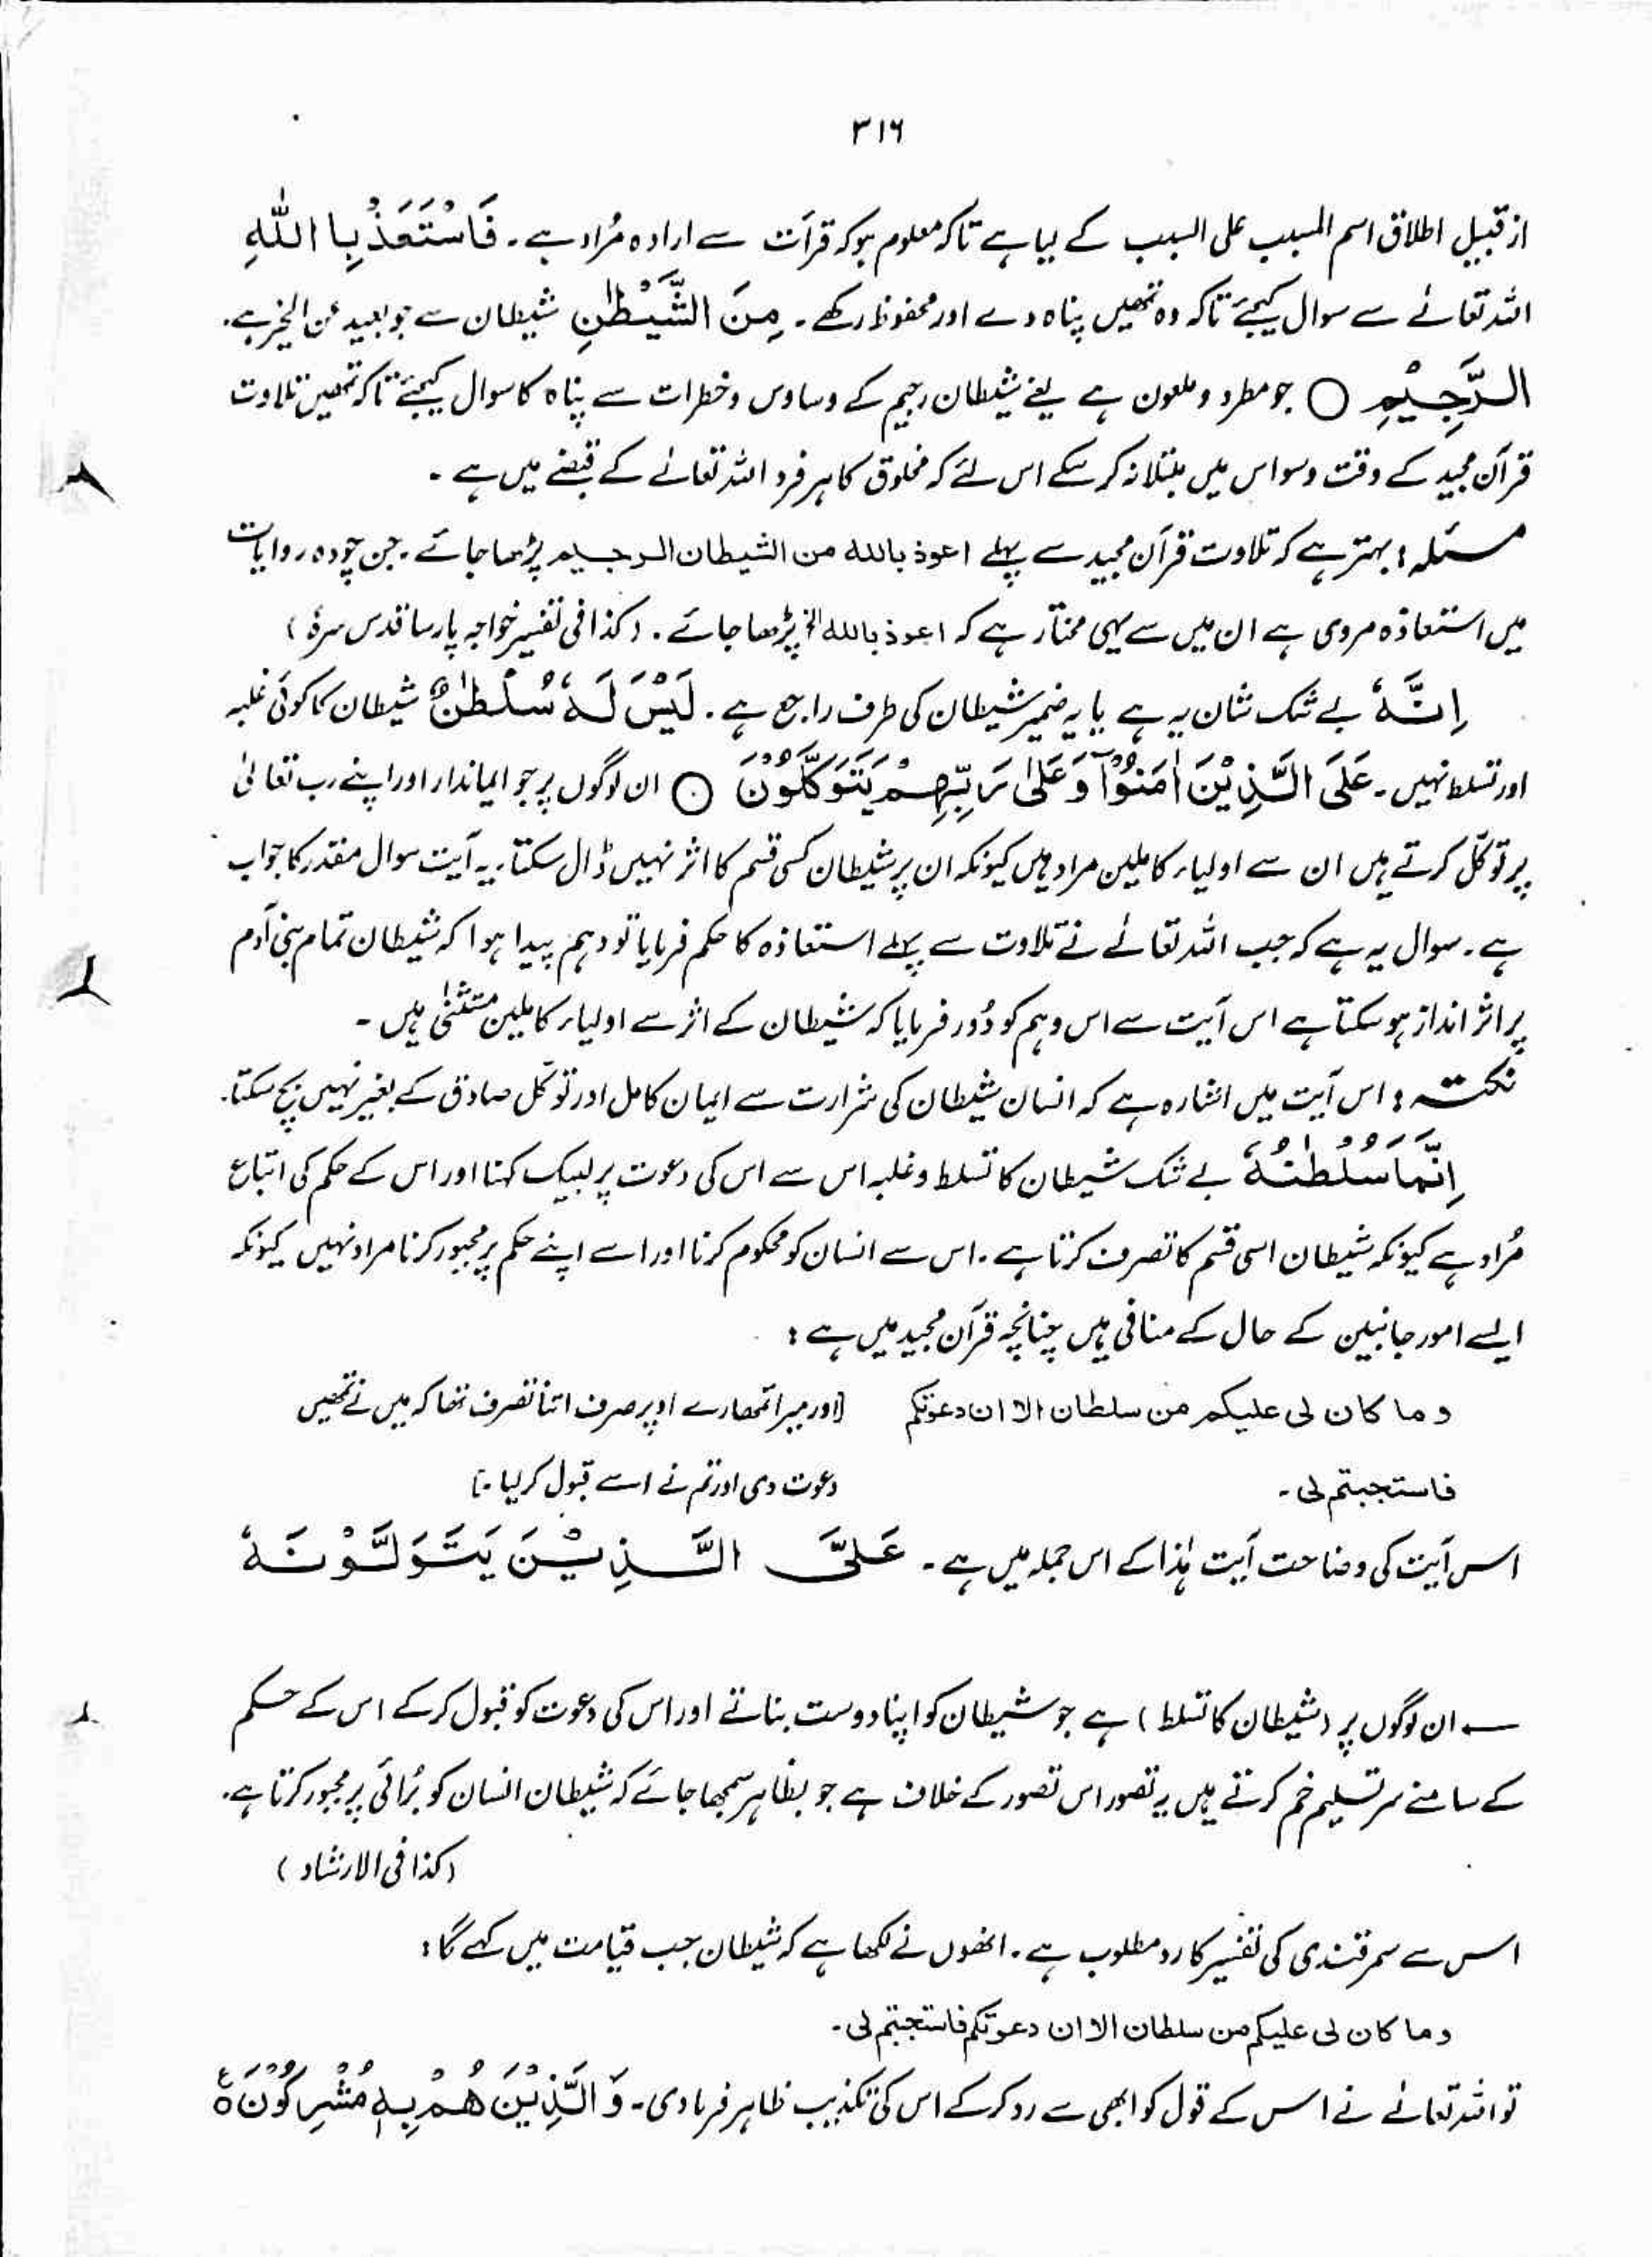 ۳۱۶
از قبیل اطلاق اسم المسبب علی السبب کے لیا ہے تاکہ معلوم ہو کہ قرآت سے ارادہ مُراد ہے۔ فَاسْتَعَذْ بِا اللّٰهِ
اللہ تعالےٰ سے سوال کیجئے تاکہ وہ تمھیں پناہ دے اور محفوظ رکھے۔ مِنَ الشَّيْطٰنِ شیطان سے جو بعید عن الخیر ہے۔
الرَّجِيْمِ ○ جو مطرد و ملعون ہے یعنے شیطان رجیم کے وساوس و خطرات سے پناہ کا سوال کیجئے تاکہ تمھیں تلاوت
قرآن مجید کے وقت وسواس میں مبتلا نہ کر سکے اس لئے کہ مخلوق کا ہر فرد اللہ تعالےٰ کے قبضے میں ہے ۔
مسئلہ : بہتر ہے کہ تلاوت قرآن مجید سے پہلے اعوذ باللہ من الشیطان الرجیم پڑھا جائے۔ جن چودہ روایات
میں استعاذہ مروی ہے ان میں سے یہی مختار ہے کہ اعوذ باللہ الخ پڑھا جائے۔ (کذا فی تفسیر خواجہ پارسا قدس سرہٗ )
اِنَّهٗ بے شک شان یہ ہے یا یہ ضمیر شیطان کی طرف راجع ہے۔ لَيْسَ لَهٗ سُلْطٰنٌ شیطان کا کوئی غلبہ
اور تسلط نہیں۔ عَلَى الَّذِيْنَ اٰمَنُوْا وَعَلٰى رَبِّهِمْ يَتَوَكَّلُوْنَ ○ ان لوگوں پر جو ایماندار اور اپنے رب تعالیٰ
پر توکّل کرتے ہیں ان سے اولیاء کاملین مراد ہیں کیونکہ ان پر شیطان کسی قسم کا اثر نہیں ڈال سکتا۔ یہ آیت سوال مقدر کا جواب
ہے۔ سوال یہ ہے کہ جب اللہ تعالےٰ نے تلاوت سے پہلے استعاذہ کا حکم فرمایا تو وہم پیدا ہوا کہ شیطان تمام بنی آدم
پر اثر انداز ہو سکتا ہے اس آیت سے اس وہم کو دُور فرمایا کہ شیطان کے اثر سے اولیاء کاملین مستثنیٰ ہیں ۔
نکتہ : اس آیت میں اشارہ ہے کہ انسان شیطان کی شرارت سے ایمان کامل اور توکّل صادق کے بغیر نہیں بچ سکتا۔
اِنَّمَا سُلْطٰنُهٗ بے شک شیطان کا تسلط و غلبہ اس سے اس کی دعوت پر لبیک کہنا اور اس کے حکم کی اتباع
مُراد ہے کیونکہ شیطان اسی قسم کا تصرف کرتا ہے۔ اس سے انسان کو محکوم کرنا اور اسے اپنے حکم پر مجبور کرنا مراد نہیں کیونکہ
ایسے امور جانبین کے حال کے منافی ہیں چنانچہ قرآن مجید میں ہے :
وما کان لی علیکم من سلطان الا ان دعوتکم (اور میرا تمھارے اوپر صرف اتنا تصرف تھا کہ میں نے تمھیں
فاستجبتم لی ۔ دعوت دی اور تم نے اسے قبول کر لیا ۔)
اس آیت کی وضاحت آیت ہٰذا کے اس جملہ میں ہے ۔ عَلَى الَّذِيْنَ يَتَوَلَّوْنَهٗ
ان لوگوں پر (شیطان کا تسلط) ہے جو شیطان کو اپنا دوست بناتے اور اس کی دعوت کو قبول کر کے اس کے حکم
کے سامنے سر تسلیم خم کرتے ہیں یہ تصور اس تصور کے خلاف ہے جو بظاہر سمجھا جائے کہ شیطان انسان کو بُرائی پر مجبور کرتا ہے۔
(کذا فی الارشاد )
اس سے سمرقندی کی تفسیر کا رد مطلوب ہے۔ انھوں نے لکھا ہے کہ شیطان جب قیامت میں کہے گا :
وما کان لی علیکم من سلطان الا ان دعوتکم فاستجبتم لی ۔
تو اللہ تعالےٰ نے اس کے قول کو ابھی سے رد کر کے اس کی تکذیب ظاہر فرما دی ۔ وَ الَّذِيْنَ هُمْ بِهٖ مُشْرِكُوْنَ ۝ ع